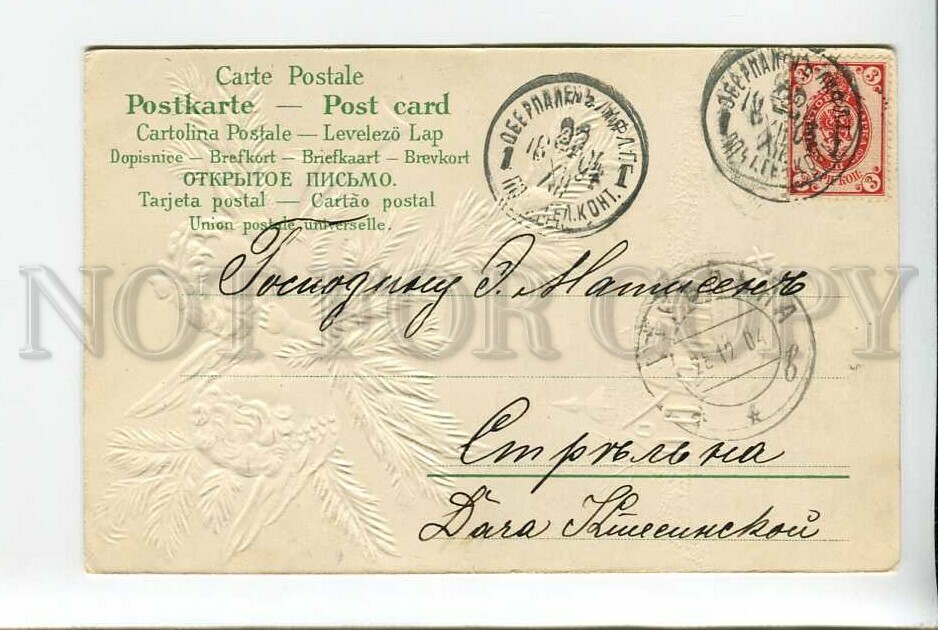 Carte Postale
Postkarte — Post card
Cartolina Postale — Levelező Lap
Dopisnice — Brefkort — Briefkaart — Brevkort
ОТКРЫТОЕ ПИСЬМО.
Tarjeta postal — Cartão postal
Union postale universelle.
ОБЕРПАЛЕНЪ ЛИФЛ. Г.
22
XII
04
КОНТ.
3
3
КОП.
NOT FOR COPY
Господину Э. Матисенъ
25 12 04
Стрѣльна
Дача Кшесинской